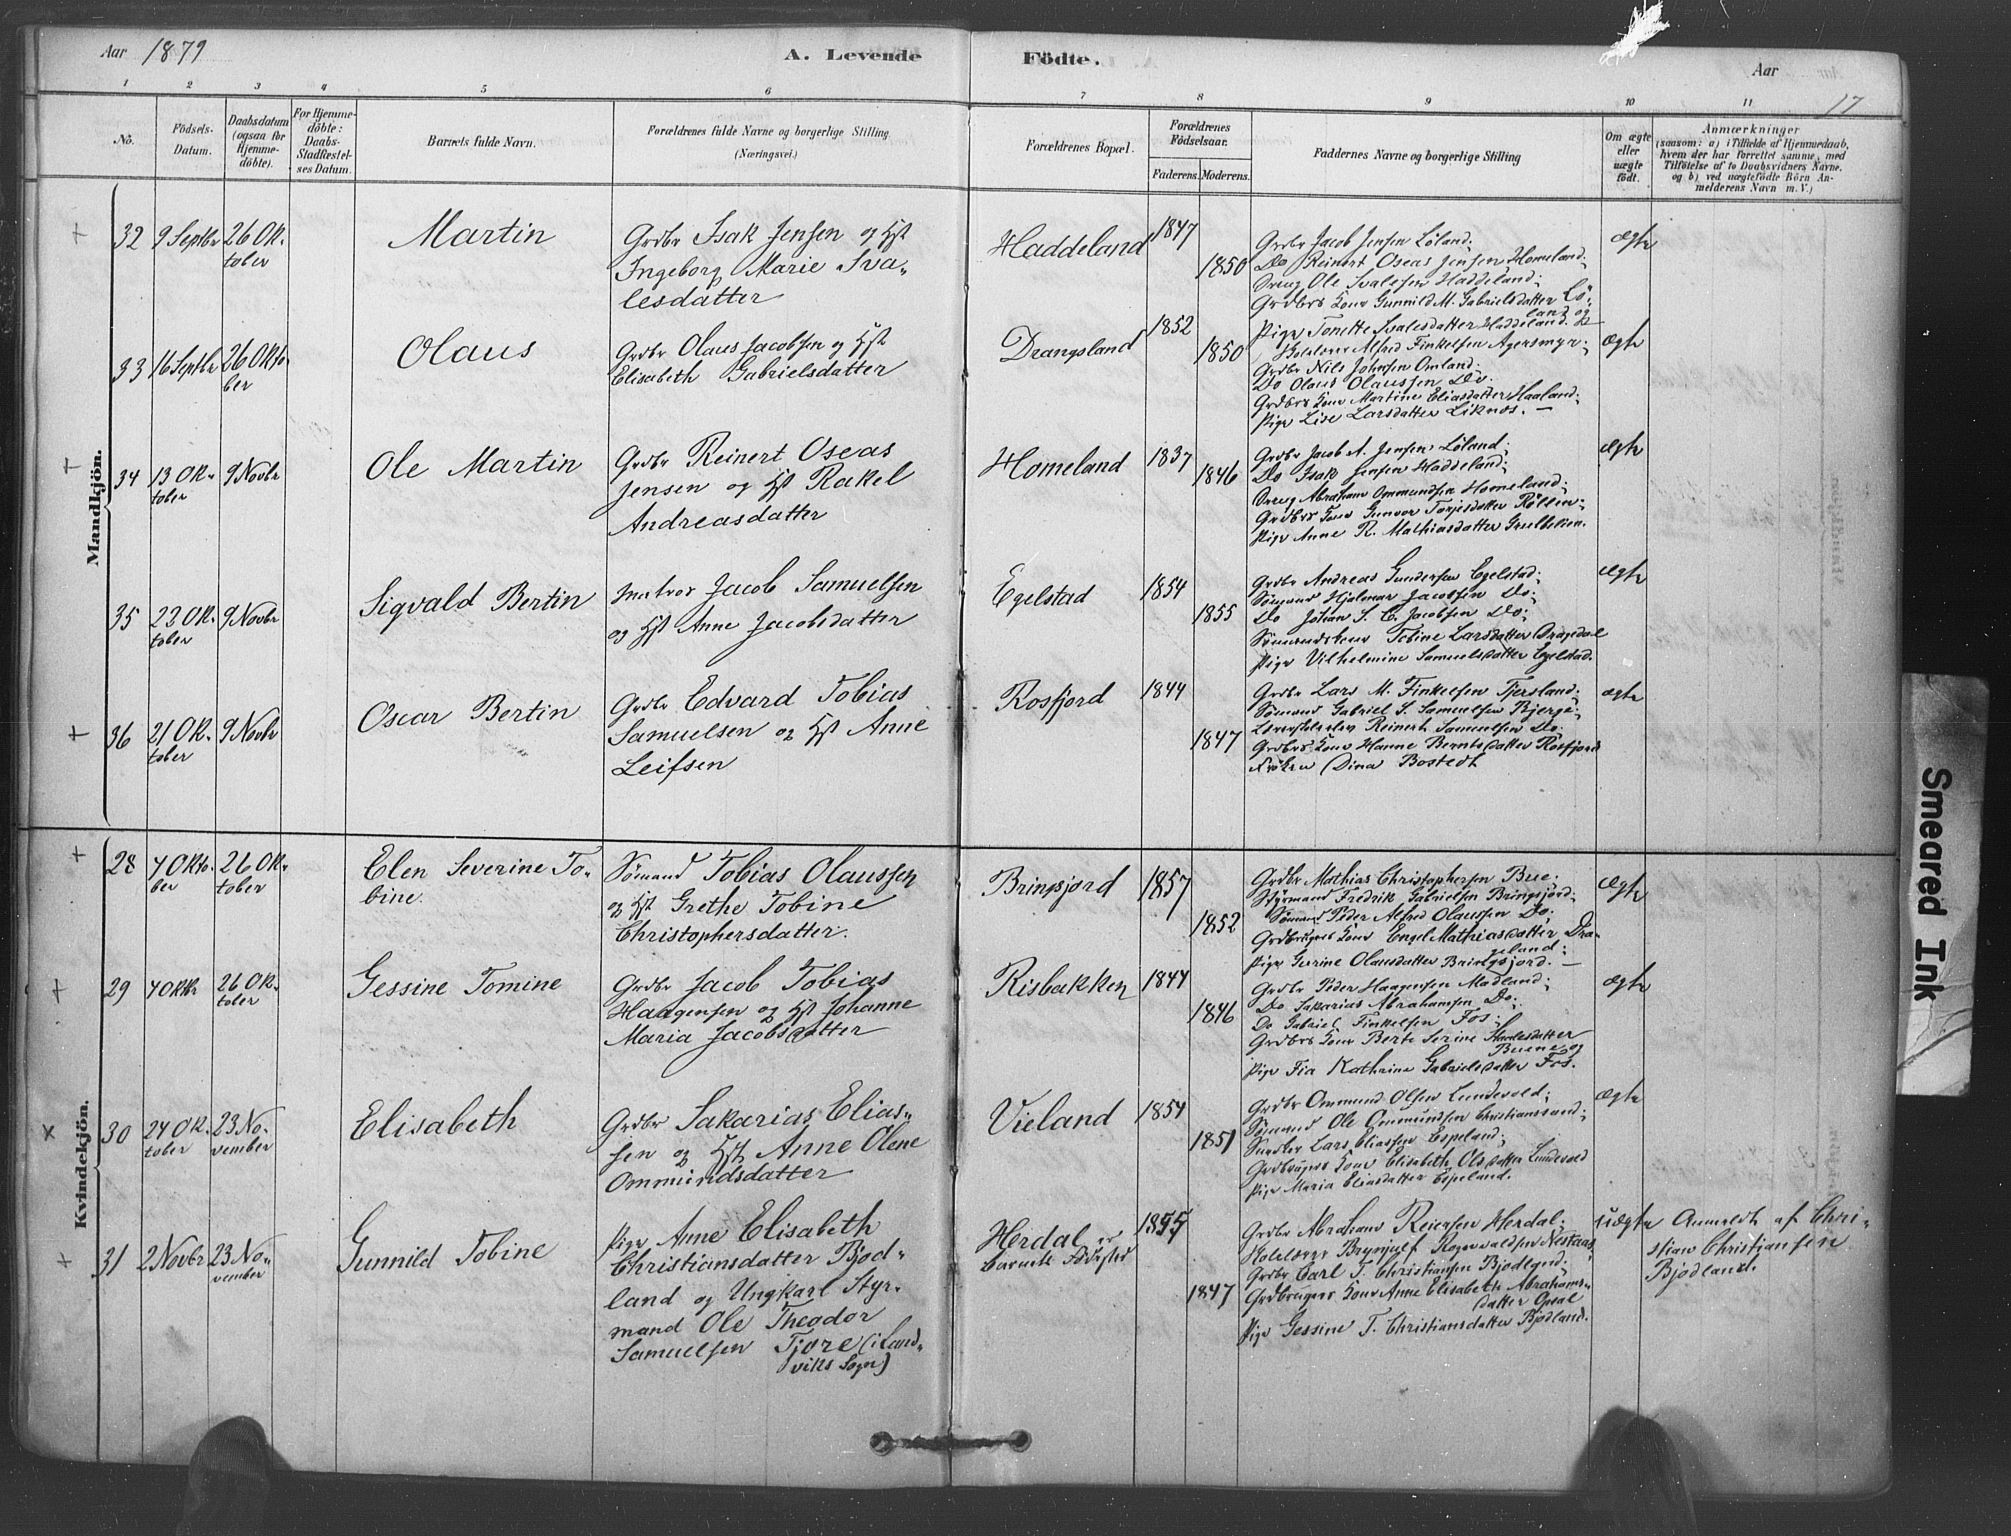 Aar 1879
A. Levende Födte.
Aar
17
1 2 3 4 5 6 7 8 9 10 11
No.
Födsels-
Datum.
Daabsdatum
(ogsaa for
Hjemme-
döbte).
For Hjemme-
döbte:
Daabs-
Stadfæstel-
ses Datum.
Barnets fulde Navn.
Forældrenes fulde Navne og borgerlige Stilling.
(Næringsvei.)
Forældrenes Bopæl.
Forældrenes
Födselsaar.
Faderens. Moderens.
Faddernes Navne og borgerlige Stilling
Om ægte
eller
uægte
født.
Anmærkninger
(saasom: a) i Tilfælde af Hjemmedaab,
hvem der har forrettet samme, med
Tilföielse af to Daabsvidners Navne.
og b) ved uægtefödte Börn An-
melderens Navn m. V.)
Mandkjön.
32 9 Septbr 26 Ok-
tober
Martin
Grdbr Isak Jensen og Hst
Ingeborg Marie Sva-
lesdatter
Haddeland
1847
1850
Grdbr Jacob Jensen Løland,
Do Reinert Oseas Jensen Homeland,
Dreng Ole Svalesen Haddeland,
Grdbrs Kone Gunnild M. Gabrielsdatter Lö-
land og
Pige Tonette Svalesdatter Haddeland.
ægte
33 16 Septbr 26 Okto-
ber
Olaus
Grdbr Olaus Jacobsen og Hst
Elisabeth Gabrielsdatter
Drangsland
1852
1850
Alfred Finkelsen Agersmyr,
Grdbr Nils Johnsen Omland,
Do Olaus Olaussen Do.
Grdbrs Kone Martine Eliasdatter Haaland,
Pige Lise Larsdatter Liknæs.
ægte
34 13 Ok-
tober
9 Novbr
Ole Martin
Grdbr Reinert Oseas
Jensen og Hst Rakel
Andreasdatter
Homeland
1837
1846
Grdbr Jacob A. Jensen Løland,
Do Isak Jensen Haddeland,
Dreng Abraham Ommundsen Homeland,
Grdbrs Kone Gunvor Torjesdatter Röllin,
Pige Anne R. Mathiasdatter
ægte
35 22 Ok-
tober
9 Novbr
Sigvald Bertin
Matros Jacob Samuelsen
og Hst Anne Jacobsdatter
Egelstad
1854
1855
Grdbr Andreas Gundersen Egelstad,
Sømand Hjalmar Jacobsen Do,
Do Johan S. C. Jacobsen Do,
Sömandskone Tobine Larsdatter Dragdal
Pige Vilhelmine Samuelsdatter Egelstad.
ægte
36 21 Ok-
tober
9 Novbr
Oscar Bertin
Grdbr Edvard Tobias
Samuelsen og Hst Anne
Leifsen
Rosfjord
1844
1847
Grdbr Lars M. Finkelsen Tjersland,
Sømand Gabriel S. Samuelsen Bjerge,
Reinert Samuelsen Do,
Grdbrs Kone Hanne Berntsdatter Rosfjord
Frøken Dina Bostedt
ægte
Kvindekjön.
28 7 Okto-
ber
26 Ok-
tober
Elen Severine To-
bine.
Sømand Tobias Olaussen
og Hst Grethe Tobine
Christophersdatter.
Bringsjord
1857
1852
Grdbr Mathias Christophersen Bue,
Styrmand Fredrik Gabrielsen Bringsjord,
Sømand Peder Alfred Olaussen Do,
Grdbrugers Kone Engel Mathiasdatter Dra-
geland,
Pige Gurine Olausdatter Bringsjord.
ægte
29 7 Oktr 26 Ok-
tober
Gessine Tomine
Grdbr Jacob Tobias
Haagensen og Hst Johanne
Maria Jacobsdatter
Risbakken
1844
1846
Grdbr Peder Haagensen Mödland,
Do Sakarias Abrahamsen Do,
Do Gabriel Finkelsen Fos,
Grdbrs Kone Berte Serine
Buene og
Pige Fia Kathrine Gabrielsdatter Fos.
ægte
30 24 Ok-
tober
23 No-
vember
Elisabeth
Grdbr Sakarias Elias-
sen og Hst Anne Olene
Ommundsdatter
Vieland
1854
1851
Grdbr Ommund Olsen Lundevold,
Sømand Ole Ommundsen Christianssand,
Snedker Lars Eliassen Espeland,
Grdbrugers Kone Elisabeth Olsdatter Lundevold
Pige Maria Eliasdatter Espeland.
ægte
31 2 Novbr 23 No-
vember
Gunnild Tobine
Pige Anne Elisabeth
Christiansdatter Bjød-
land og Ungkarl Styr-
mand Ole Theodor
Samuelsen Tjore (i Land-
viks Sogn)
Herdal er
barnets Födested
1855
1847
Grdbr Abraham Reiersen Herdal,
Holelærer Brynjulf Rogevaldsen Nestaas,
Grdbr Carl T. Christiansen Bjödland,
Grdbrugers Kone Anne Elisabeth Abrahams-
datter Opsal
Pige Gessine T. Christiansdatter Bjödland.
uægte
Anmeldt af Chri-
stian Christiansen
Bjødland.
Smeared Ink